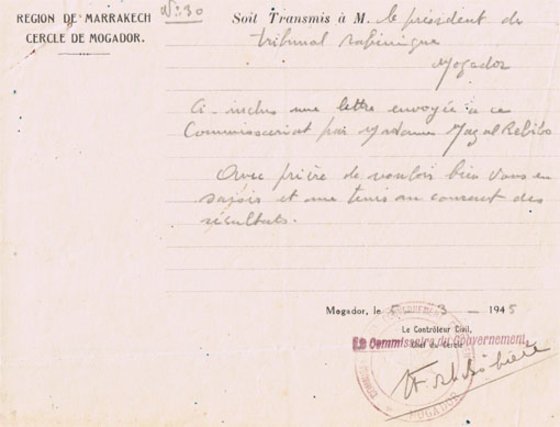 REGION DE MARRAKECH
CERCLE DE MOGADOR.
N: 30
Soit Transmis à M. le président du
tribunal rabinique
Mogador
Ci-inclus une lettre envoyée à ce
Commissariat par Madame Mazal Rebibo
Avec prière de vouloir bien vous en
saisir et me tenir au courant des
résultats.
Mogador, le 5 - 3 - 1945
Le Contrôleur Civil,
Chef du Cercle
Le Commissaire du Gouvernement
MOGADOR